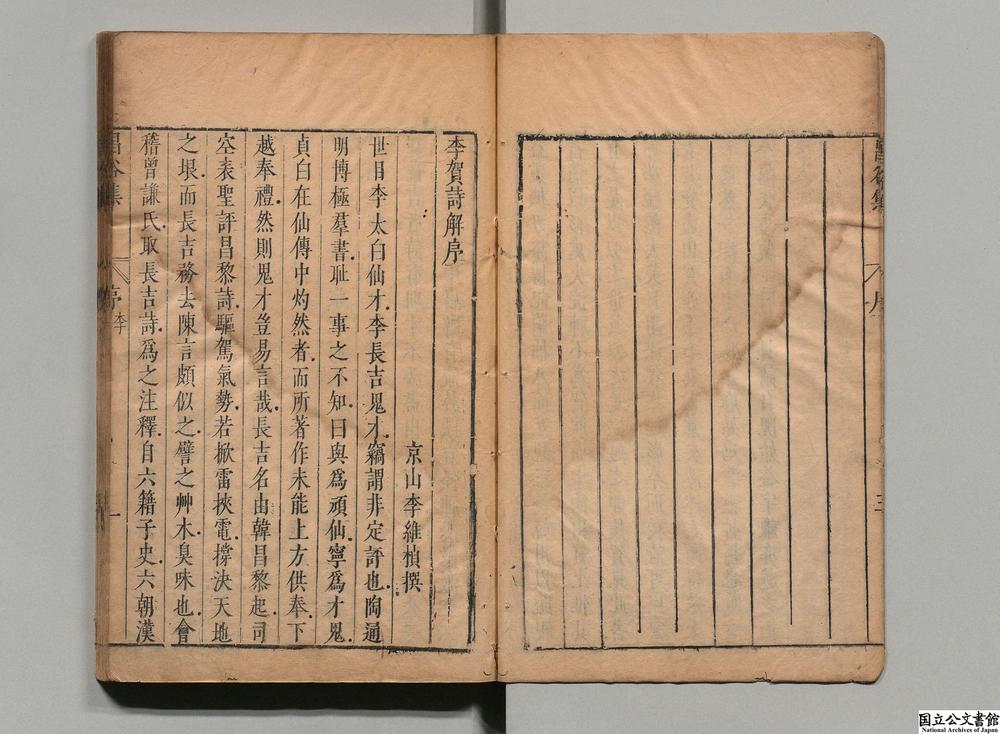 序
三
李賀詩解序
京山李維楨撰
世目李太白仙才李長吉鬼才竊謂非定評也陶通
明博極羣書耻一事之不知曰與爲頑仙寧爲才鬼
貞白在仙傳中灼然者而所著作未能上方供奉下
越奉禮然則鬼才豈易言哉長吉名由韓昌黎起司
空表聖評昌黎詩驅駕氣勢若掀雷挾電撐決天地
之垠而長吉務去陳言頗似之譬之艸木臭味也會
稽曾謙氏取長吉詩爲之注釋自六籍子史六朝漢
昌谷集
序
李
一
国立公文書館
National Archives of Japan